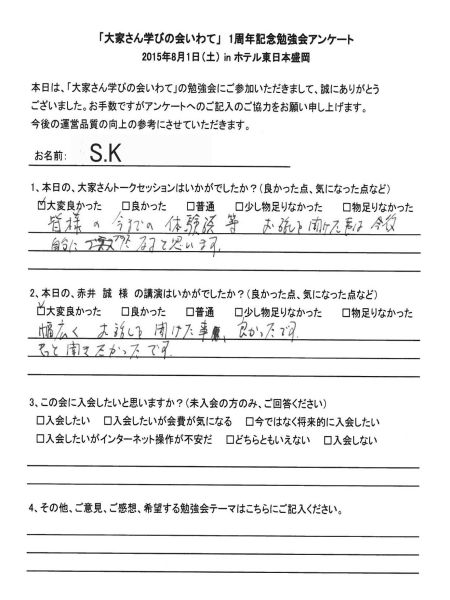 「大家さん学びの会いわて」 1周年記念勉強会アンケート
2015年8月1日(土) in ホテル東日本盛岡
本日は、「大家さん学びの会いわて」の勉強会にご参加いただきまして、誠にありがとう
ございました。お手数ですがアンケートへのご記入のご協力をお願い申し上げます。
今後の運営品質の向上の参考にさせていただきます。
お名前: S.K
1、本日の、大家さんトークセッションはいかがでしたか?(良かった点、気になった点など)
☑大変良かった □良かった □普通 □少し物足りなかった □物足りなかった
皆様の今までの体験談等 お話しを聞けた事は今後
自分に プラスになると思います。
2、本日の、赤井 誠 様 の講演はいかがでしたか?(良かった点、気になった点など)
☑大変良かった □良かった □普通 □少し物足りなかった □物足りなかった
幅広く お話しを聞けた事、良かったです。
もっと聞きたかったです。
3、この会に入会したいと思いますか?(未入会の方のみ、ご回答ください)
□入会したい □入会したいが会費が気になる □今ではなく将来的に入会したい
□入会したいがインターネット操作が不安だ □どちらともいえない □入会しない
4、その他、ご意見、ご感想、希望する勉強会テーマはこちらにご記入ください。